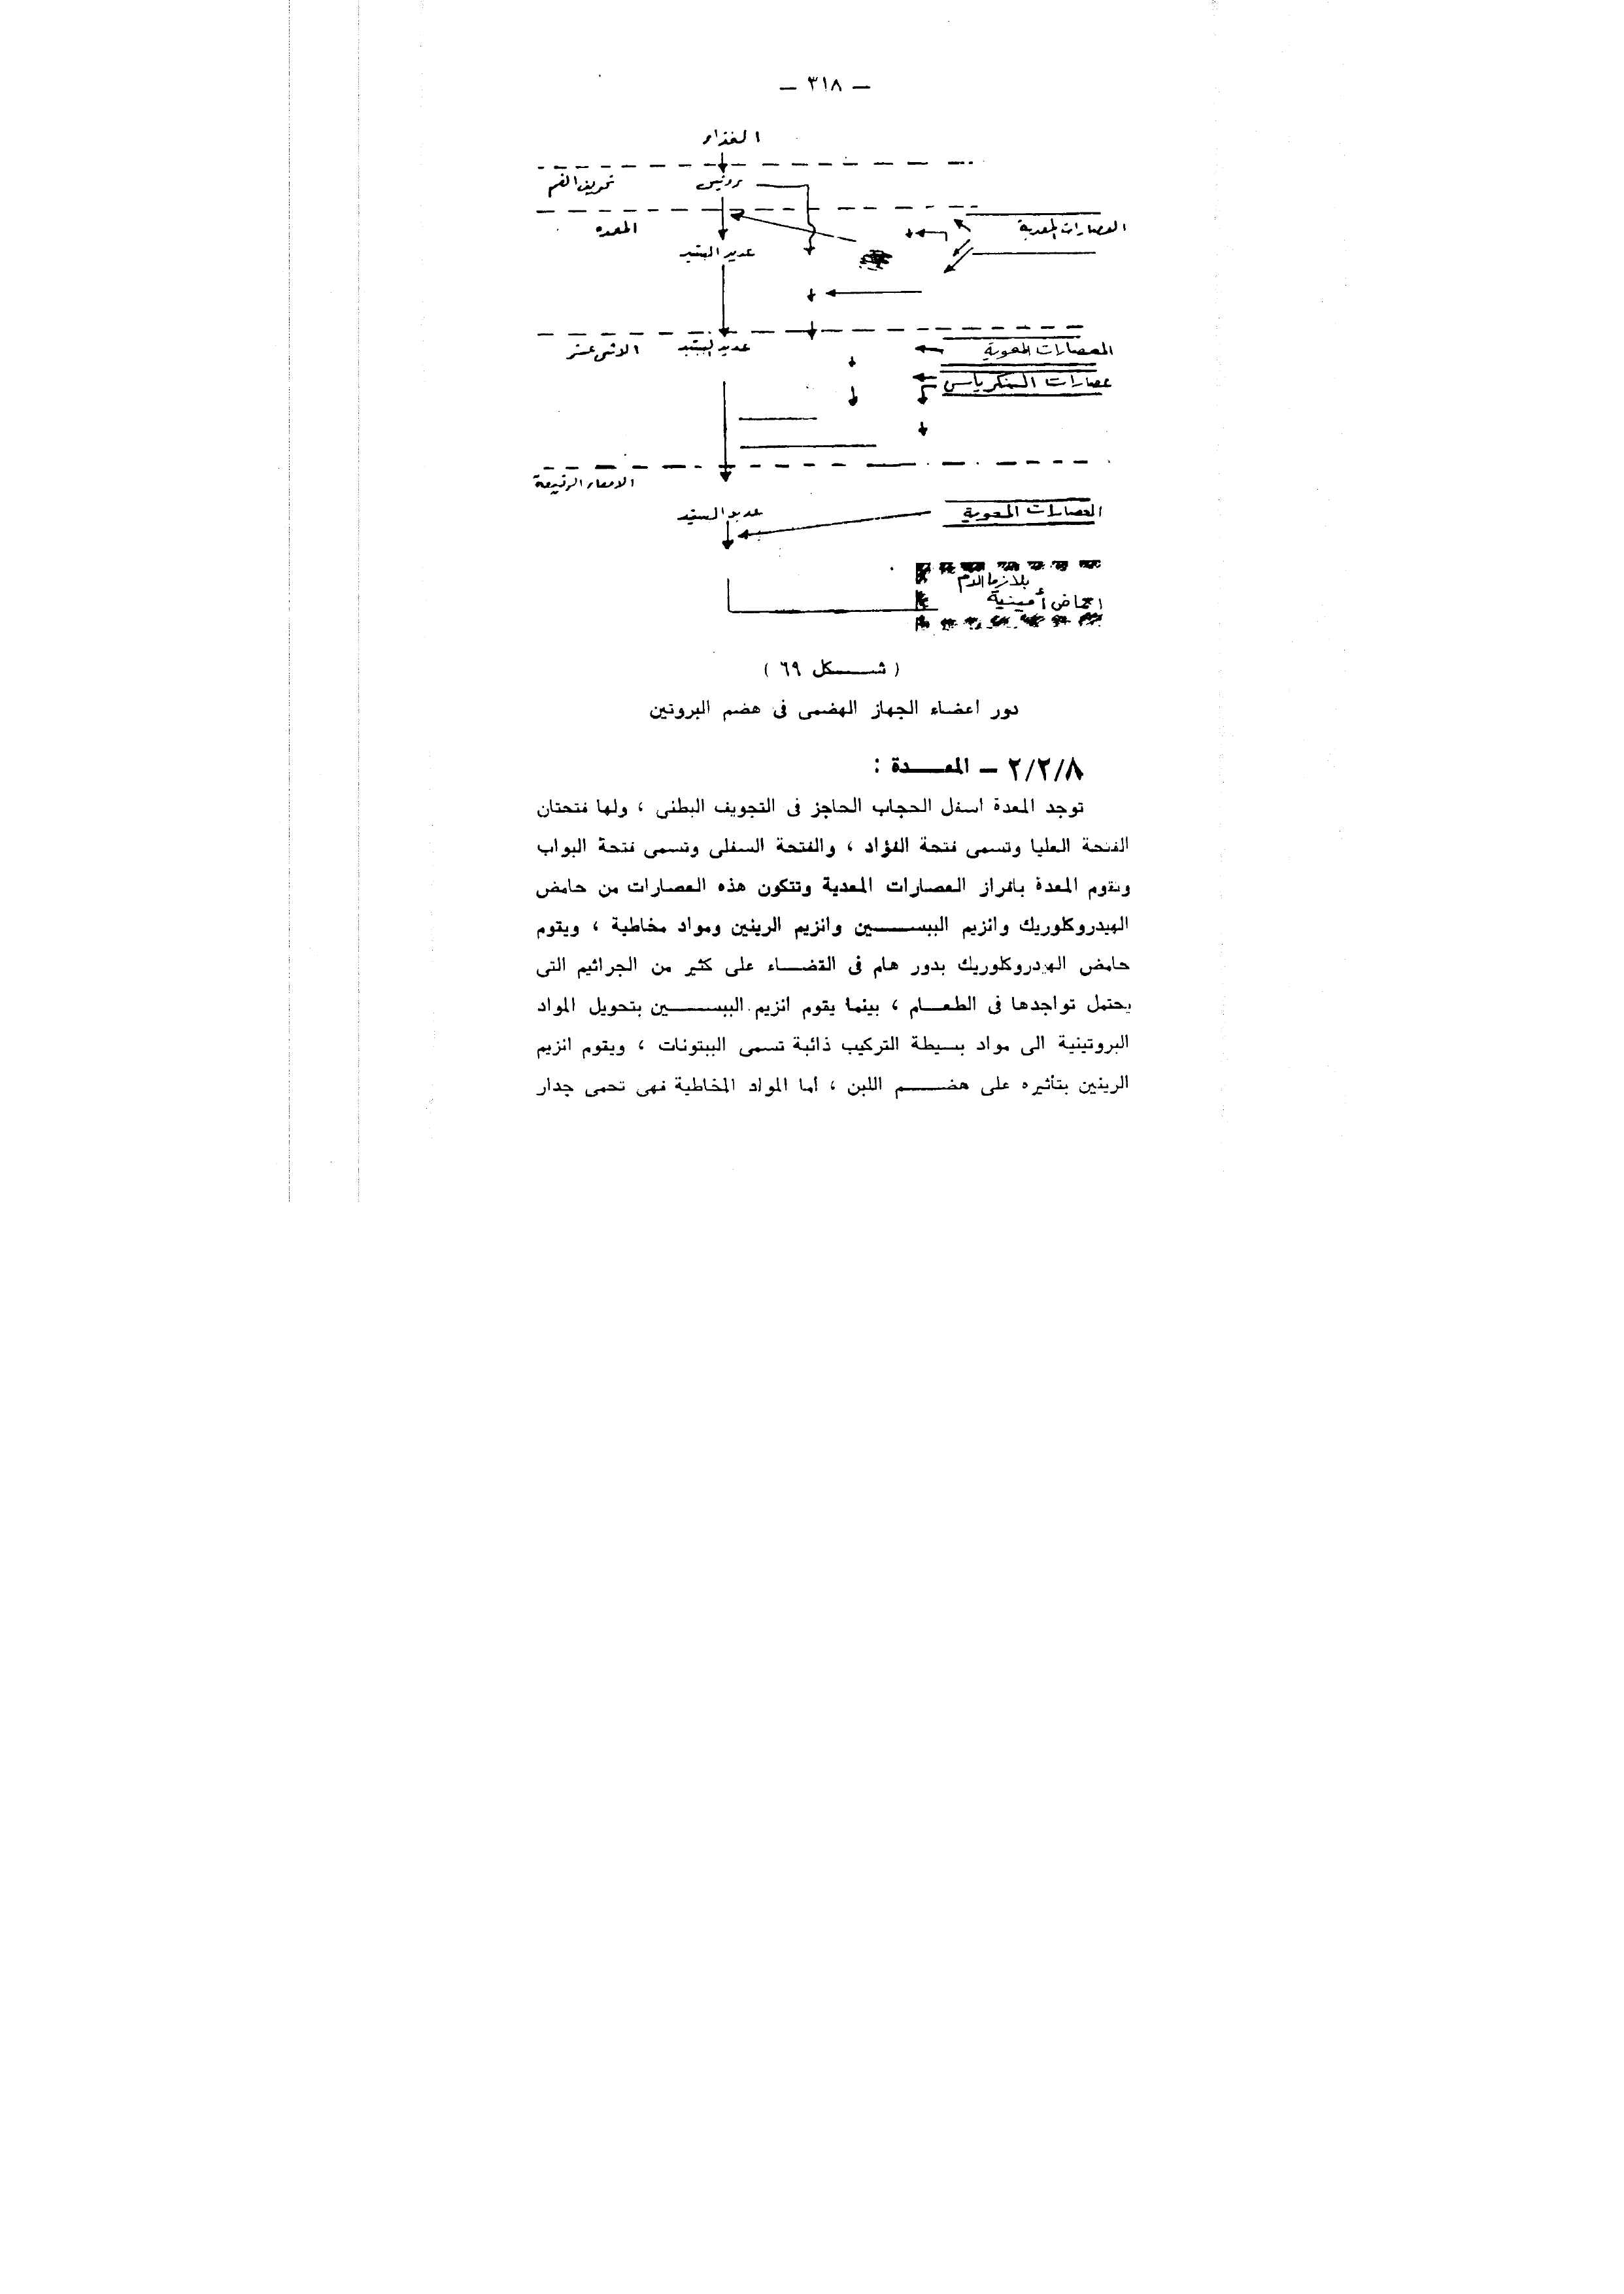 — ٣١٨ —
الغذاء
تجويف الفم
بروتين
المعده
العصارات المعدية
عديد الببتيد
الاثنى عشر
عديد الببتيد
العصارات المعوية
عصارات البنكرياس
الامعاء الرفيعة
عديد الببتيد
العصارات المعوية
بلازما الدم
احماض أمينية
( شـــكل ٦٩ )
دور اعضاء الجهاز الهضمى فى هضم البروتين
٢/٢/٨ — المعـــدة :
توجد المعدة اسفل الحجاب الحاجز فى التجويف البطنى ، ولها فتحتان
الفتحة العليا وتسمى فتحة الفؤاد ، والفتحة السفلى وتسمى فتحة البواب
وتقوم المعدة بافراز العصارات المعدية وتتكون هذه العصارات من حامض
الهيدروكلوريك وانزيم الببســـين وانزيم الرينين ومواد مخاطية ، ويقوم
حامض الهيدروكلوريك بدور هام فى القضـاء على كثير من الجراثيم التى
يحتمل تواجدها فى الطعـام ، بينما يقوم انزيم الببســـين بتحويل المواد
البروتينية الى مواد بسيطة التركيب ذائبة تسمى الببتونات ، ويقوم انزيم
الرينين بتأثيره على هضـــم اللبن ، أما المواد المخاطية فهى تحمى جدار